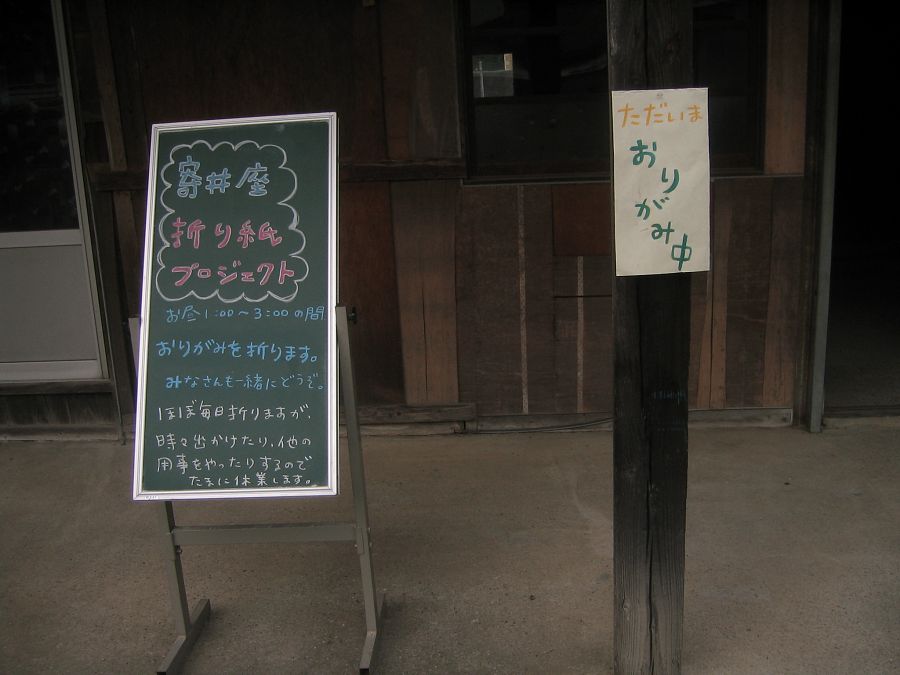 寄井座
折り紙
プロジェクト
お昼1:00～3:00の間
おりがみを折ります。
みなさんも一緒にどうぞ。
ほぼ毎日折りますが、
時々出かけたり、他の
用事をやったりするので
たまに休業します。
ただいま
おりがみ中